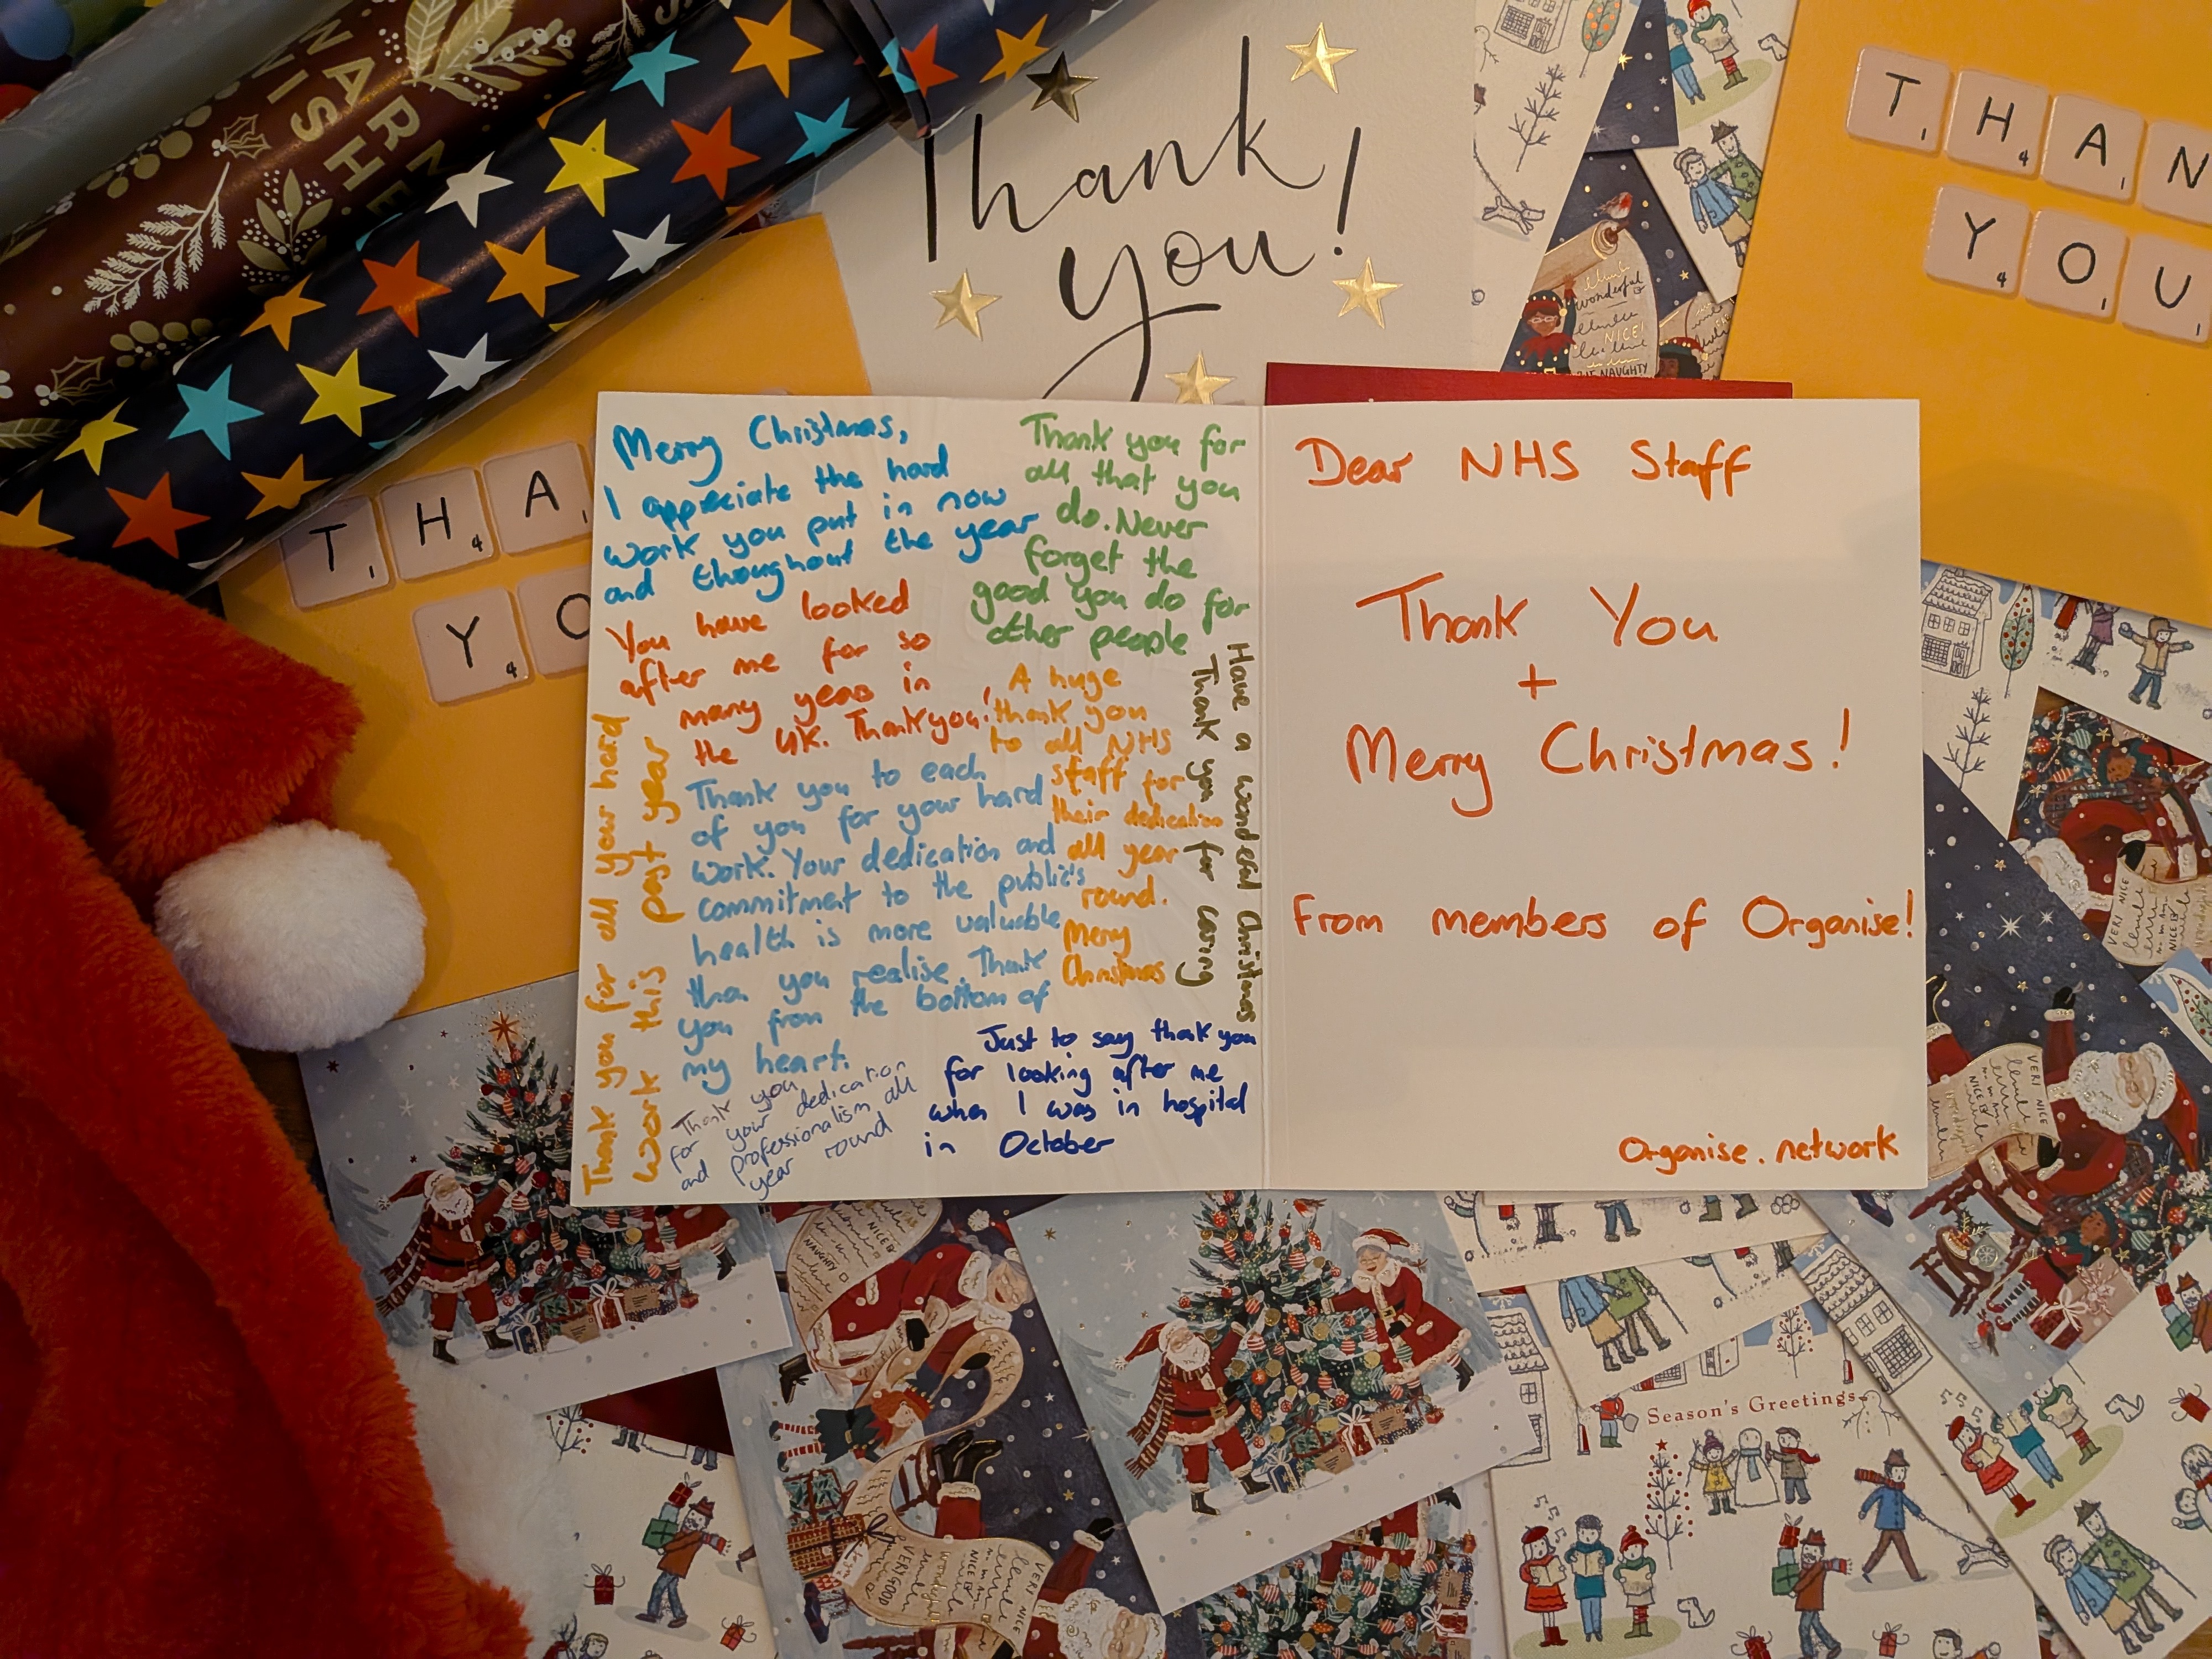 WARMEST
WISHES
Thank
you!
T1 H4 A1 N
Y4 O1 U1
T1 H4 A1
Y4 O
wonderful
NICE!
NAUGHTY
Merry Christmas,
I appreciate the hard
work you put in now
and thoughout the year
Thank you for
all that you
do. Never
forget the
good you do for
other people
You have looked
after me for so
many years in
the UK. Thankyou!
A huge
thank you
to all NHS
staff for
their dedication
all year
round.
Merry
Christmas
Have a wonderful Christmas
Thank you for caring
Thank you for all your hard
work this past year
Thank you to each
of you for your hard
work. Your dedication and
commitment to the public's
health is more valuable
than you realise. Thank
you from the bottom of
my heart.
Thank you
for your dedication
and professionalism all
year round
Just to say thank you
for looking after me
when I was in hospital
in October
Dear NHS Staff
Thank You
+
Merry Christmas!
From members of Organise!
Organise.network
VERI NICE
NICE
VERI NICE
NICE
NICE
NAUGHTY
Season's Greetings
VERI GOOD
NICE
VERI NICE